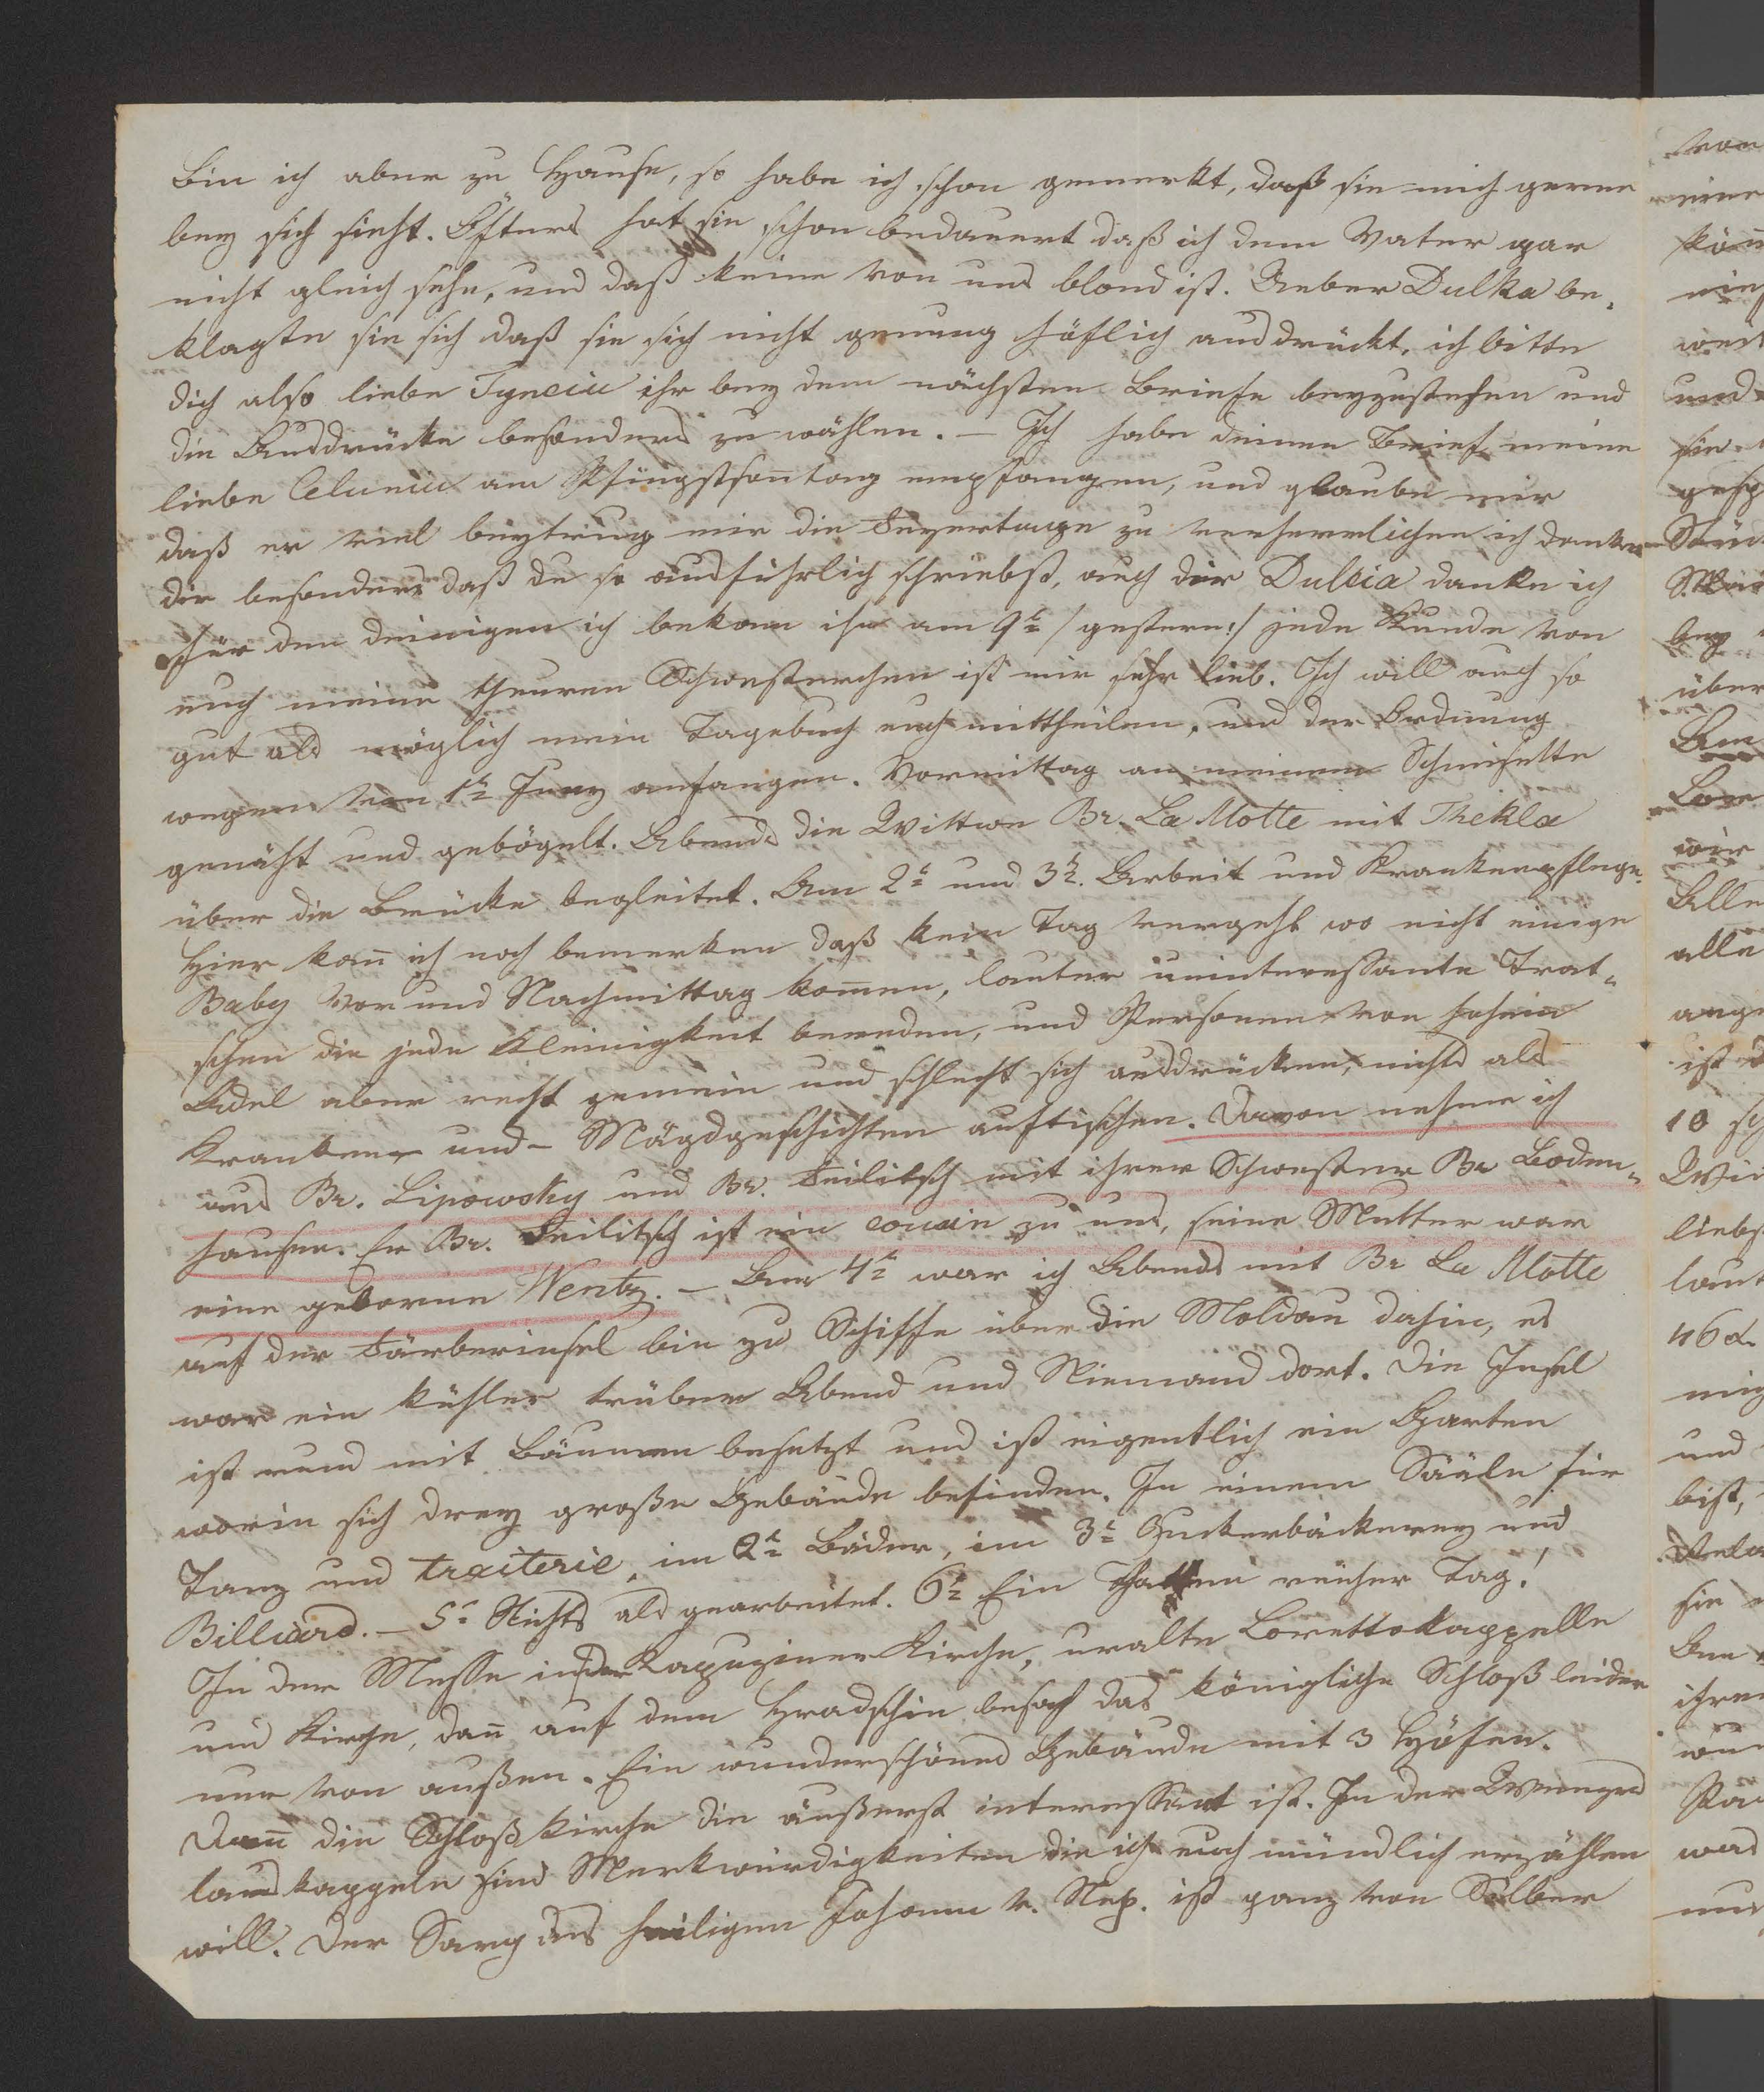 Bin ich aber zu Hause, so habe ich schon gemerkt, daß sie mich gerne
bey sich sieht. Öfters hat sie schon bedauert daß ich dem Vater gar
nicht gleich sehe, und daß keine von uns blond ist. Ueber Dulka be-
klagte sie sich daß sie sich nicht genung höflich ausdrückt, ich bitte
dich also liebe Tyncia ihr bey dem nächsten Briefe beyzustehen und
die Ausdrücke besonders zu wählen. – Ich habe deinen Brief meine
liebe Celunia am Pfingstsontag empfangen, und glaube mir
daß er viel beytrug mir die Feyertage zu verherrlichen ich danke
dir besonders daß du so ausführlich schriebst, auch dir Dulcia danke ich
für den deinigen ich bekam ihn am 9t /:gestern:/ jede Kunde von
euch meine theuren Schwesterchen ist mir sehr lieb. Ich will auch so
gut als möglich mein Tagebuch euch mittheilen, und der Ordnung
wegen vom 1t Juny anfangen. Vormittag an meinem
genäht und gebögelt. Abends die Wittwe Br. La Motte mit Thekla
über die Brücke begleitet. Am 2t und 3t. Arbeit und Krankenpflege.
Hier kan̄ ich noch bemerken daß kein Tag vergeht wo nicht einige
Baby Vor und Nachmittag kom̄en, lauter uninteressante Trat-
schen die jede Kleinigkeit bereden, und Personen von hohem
Adel aber recht gemein und schlecht sich ausdrücken, nichts als
Kranken- und Mägdgeschichten auftischen. Davon nehme ich
aus Br. Lipowsky und Br. Feilitsch mit ihrer Schwester Br Boden-
hausen. Er Br. Feilitsch ist ein cousin zu uns, seine Mutter war
eine geborne Wentz. – Am 4t war ich Abends mit Br La Motte
auf der Färberinsel bin zu Schiffe über die Moldau dahin, es
war ein kühler trüber Abend und Niemand dort. Die Insel
ist rund mit Bäumen besetzt und ist eigentlich ein Garten
worin sich drey große Gebäude befinden. In einem Sääle für
Tanz und traiterie, im 2t Bäder, im 3t Zuckerbäckerey und
Billiard. – 5t Nichts als gearbeitet. 6t Ein Thatten reicher Tag!
In der Messe in der Kapuziner Kirche, uralte Lorettokappelle
und Kirche, dan̄ auf dem Hradschin besah das königliche Schloß leider
nur von außen. Ein wunderschönes Gebäude mit 3 Höfen.
Dan̄ die Schloßkirche die äußerst interessant ist. In der Wenzes
lauskappeln sind Merkwürdigkeiten die ich euch mündlich erzählen
will. Der Sarg des heiligen Johann v. Nep. ist ganz von Silber